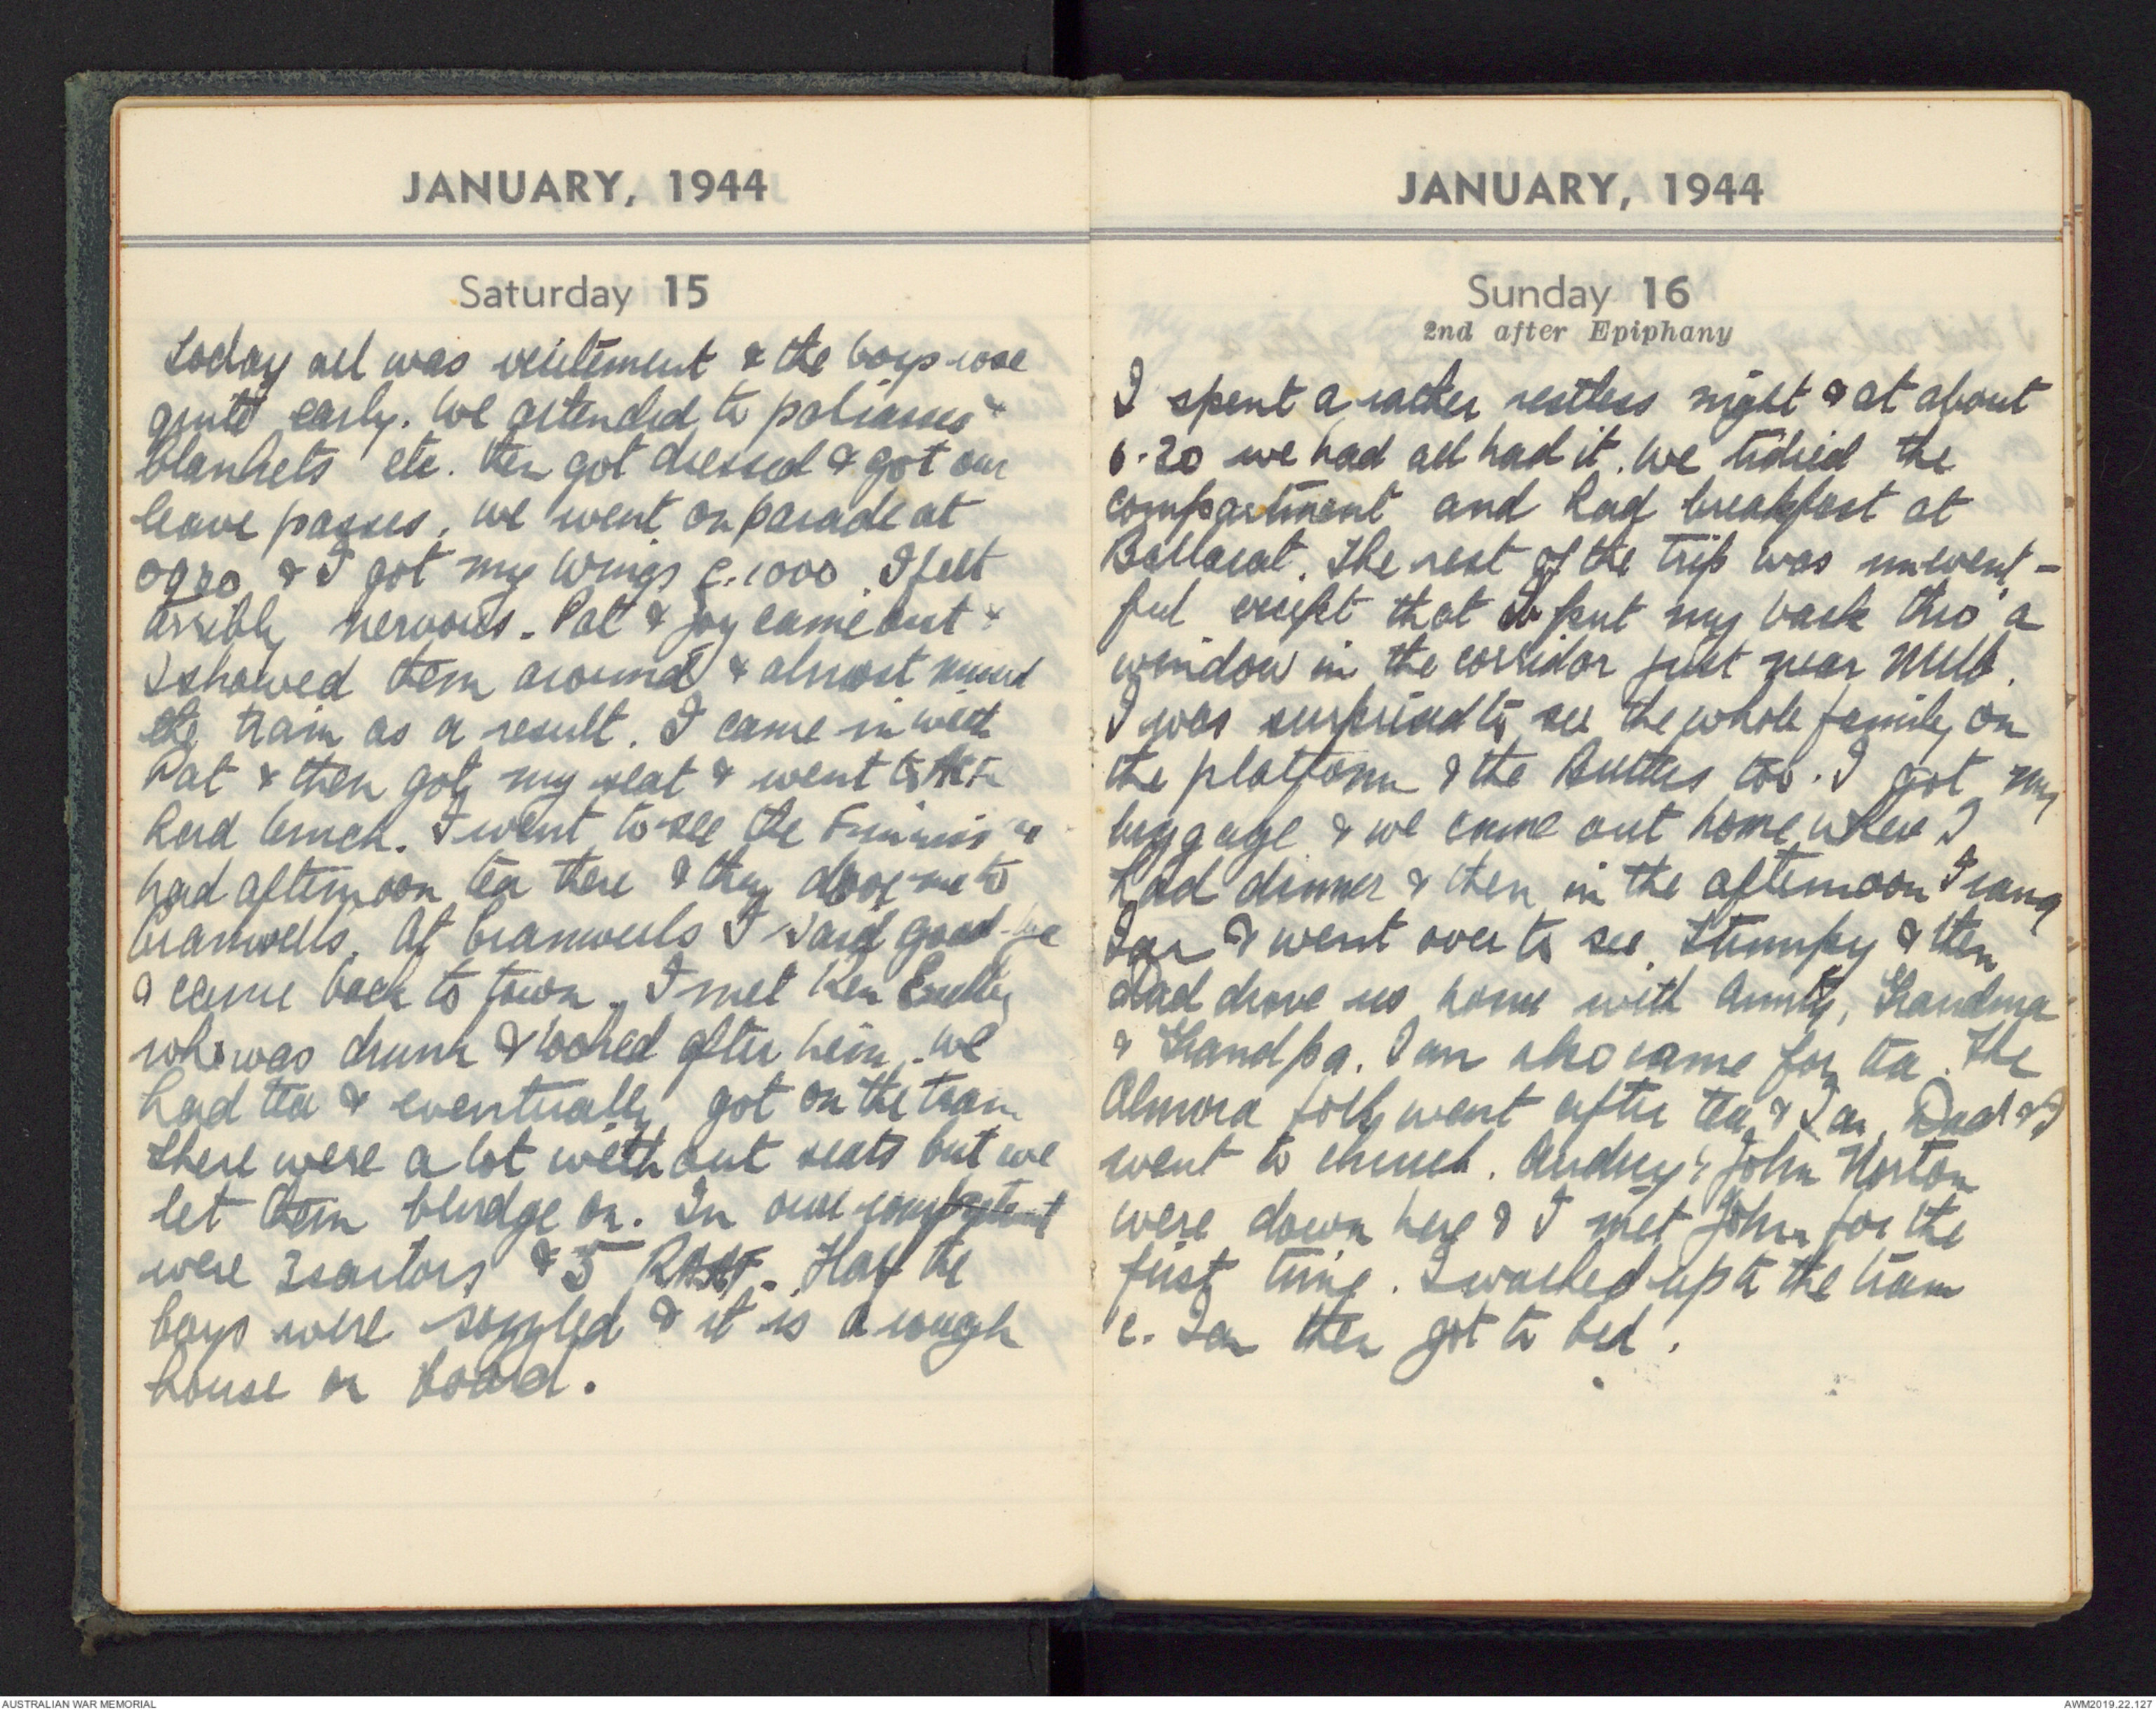 JANUARY, 1944
Saturday 15
Today all was excitement & the boys rose
quite early. We attended to paliasses &
blankets etc. then got dressed & got our
leave passes, we went on parade at
0930 & I got my wings c. 1000 I felt
terribly nervous. Pat & Joy came out &
I showed them around & almost missed
the train as a result. I came in with
Pat & then got my seat & went to
had lunch. I went to see the &
had afternoon tea there & they drove me to
Bramwells. At Bramwells I said good-bye
& came back to town. I met Ken
who was drunk & looked after him. We
had tea & eventually got on the train
There were a lot without seats but we
let them bludge on. In our compartment
were 3 sailors & 5 RAAF. Half the
boys were sozzled & it is a rough
house on board.
JANUARY, 1944
Sunday 16
2nd after Epiphany
I spent a rather restless night & at about
6.20 we had all had it. We tidied the
compartment and had breakfast at
Ballarat. The rest of the trip was unevent-
ful except that I put my back thro' a
window in the corridor just near Melb.
I was surprised to see the whole family on
the platform & the Butters too. I got my
luggage & we came out home where I
had dinner & then in the afternoon I rang
Ian & went over to see Stumpy & then
Dad drove us home with Aunty, Grandma
& Grandpa. Ian also came for tea. The
Almora folk went after tea & Ian, Dad & I
went to church. Audrey & John Norton
were down here & I met John for the
first time. I walked up to the tram
c. Ian then got to bed.
AUSTRALIAN WAR MEMORIAL
AWM2019.22.127